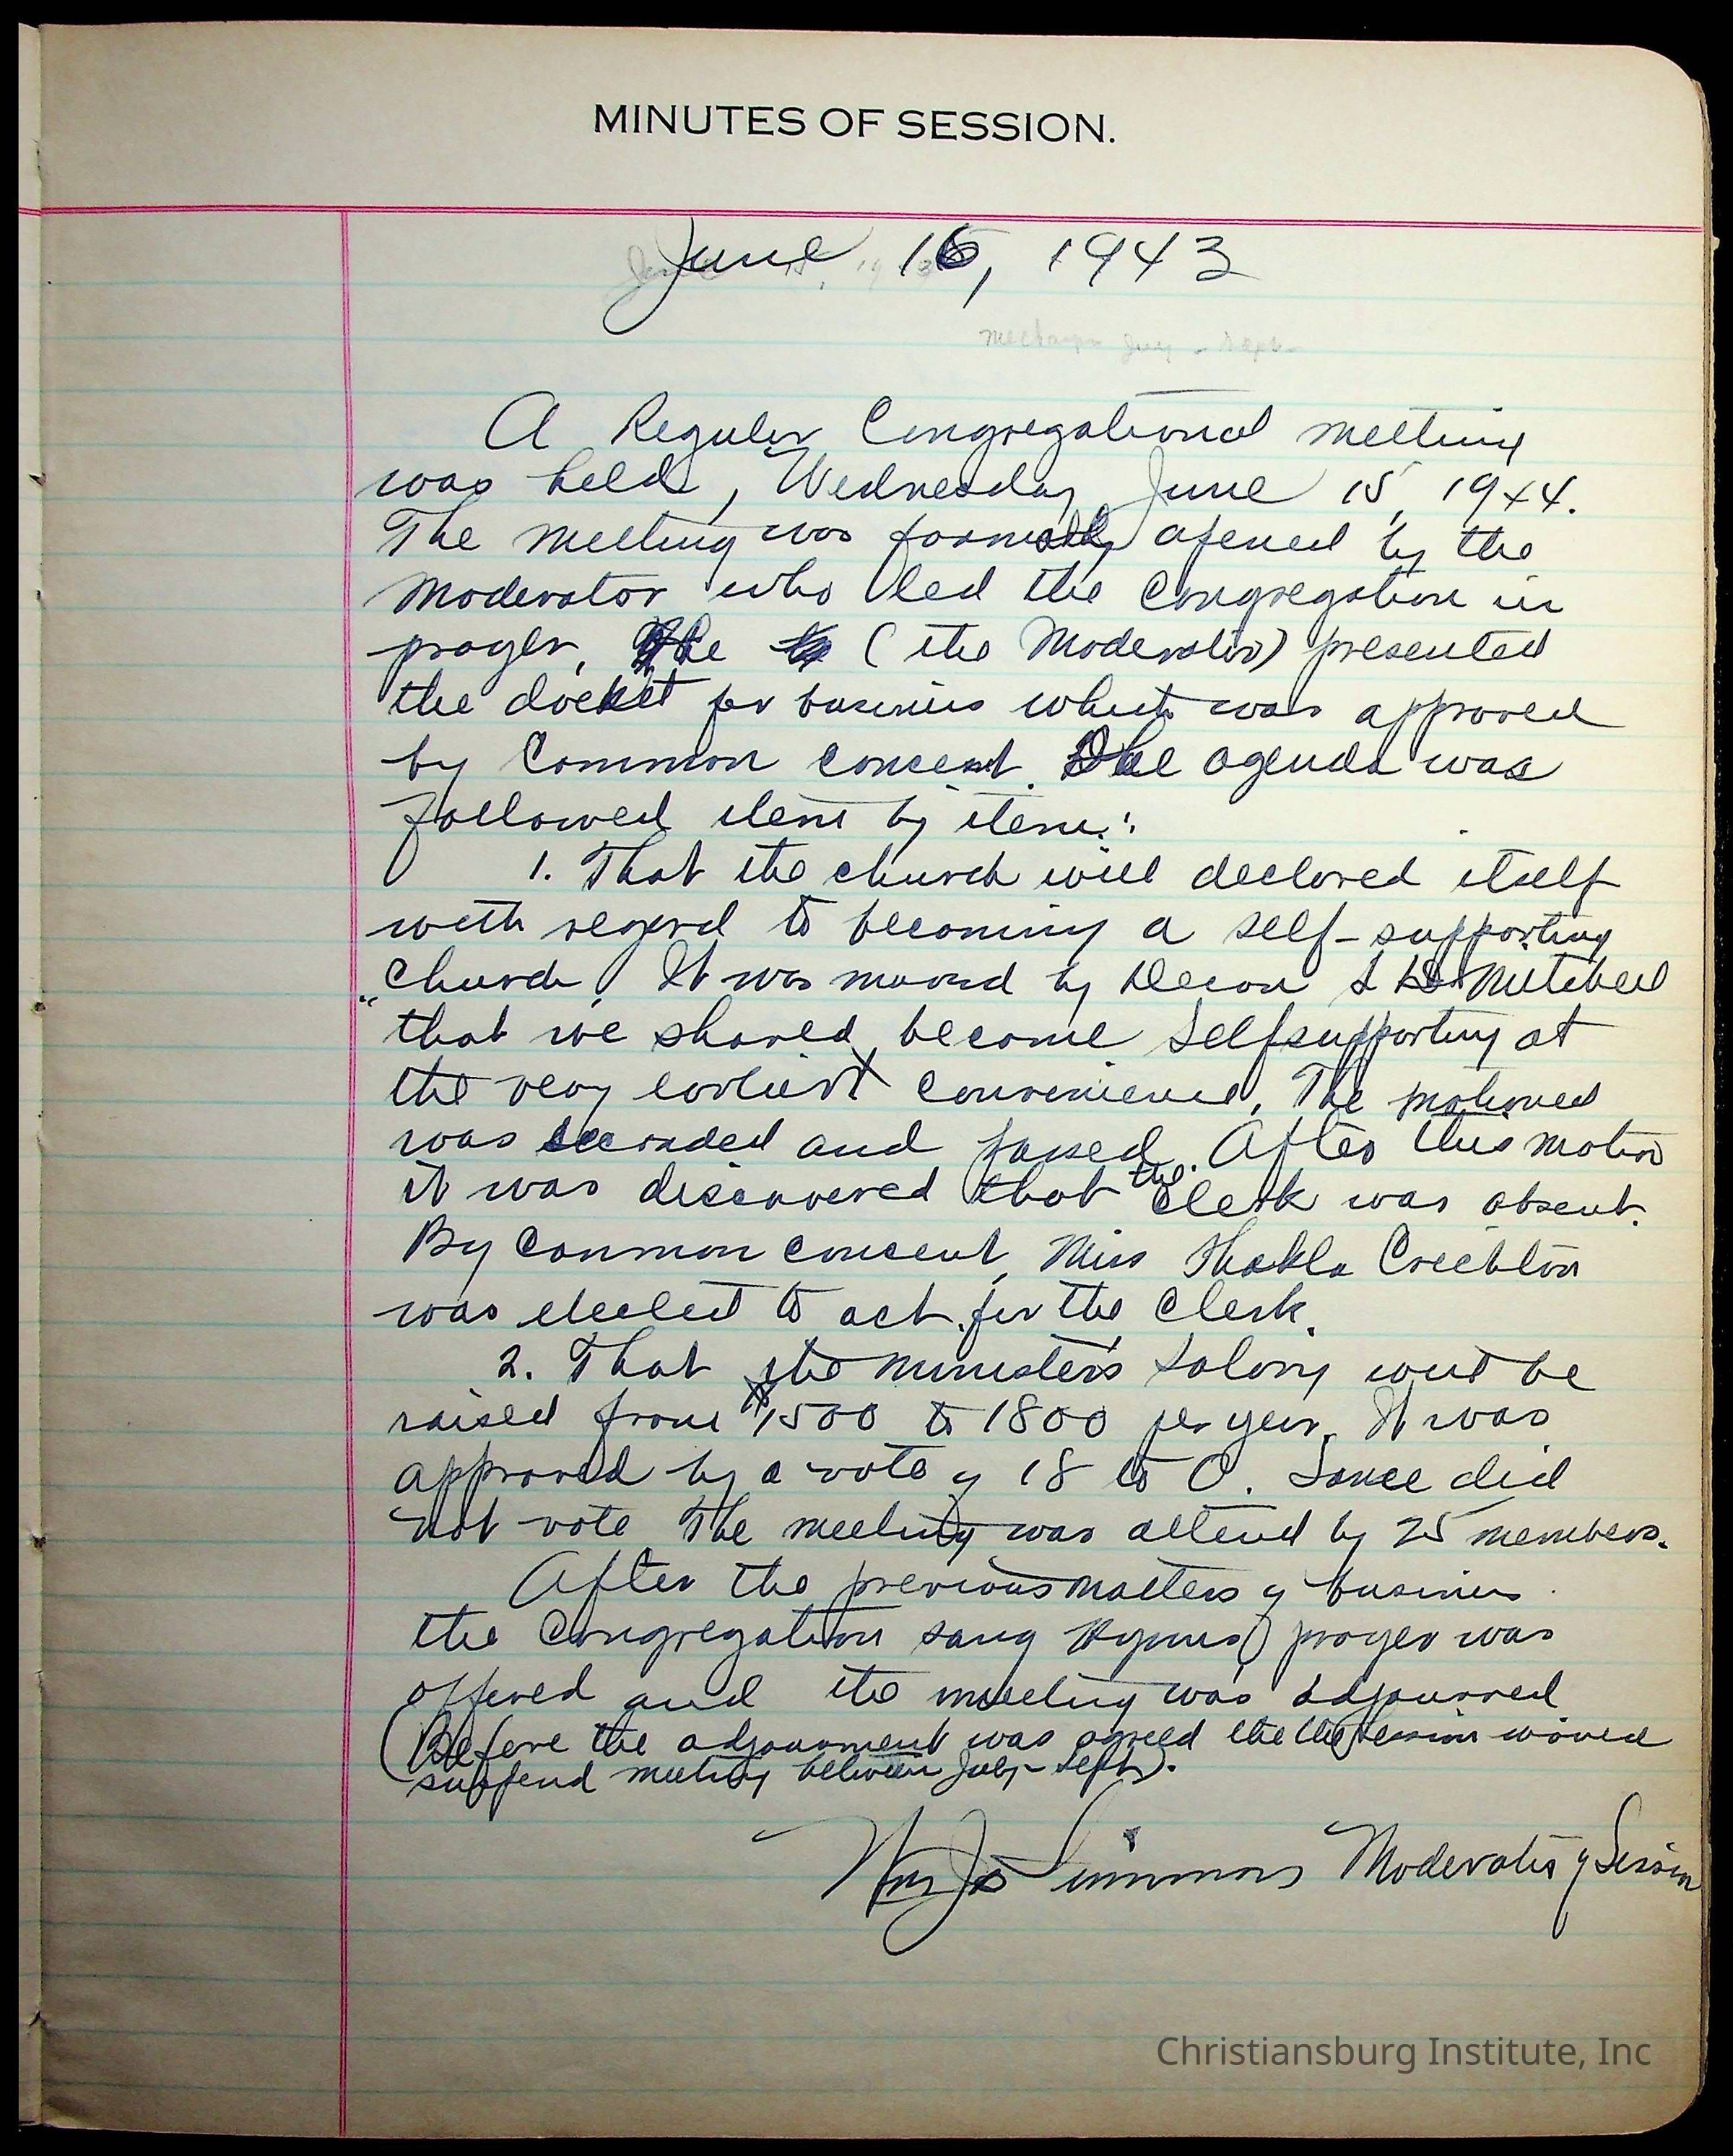 MINUTES OF SESSION.
June 16, 1943
A Regular Congregational meeting
was held, Wednesday June 15, 1944.
The meeting was formally opened by the
Moderator who led the Congregation in
prayer, He (the Moderator) presented
the docket for business which was approved
by Common concent. The agenda was
followed item by item:
1. That the church will declared itself
with regard to becoming a self-supporting
Church. It was moved by Decon Mitchell
"that we should become selfsupporting at
the very earliest convenience. The motioned
was seconded and passed. After this motion
it was discovered that the Clerk was absent.
By Common concent, Miss Thekla Creichton
was elected to act for the Clerk.
2. That the minister's salary will be
raised from $1500 to 1800 per year. It was
approved by a vote of 18 to 0. Some did
not vote The meeting was attend by 25 members.
After the previous matters of business
the Congregation sang Hymns, prayer was
offered and the meeting was adjourned
(Before the adjournment was agreed the session would
suspend meeting between July - Sept).
Wm Simmons Moderator of Session
Christiansburg Institute, Inc